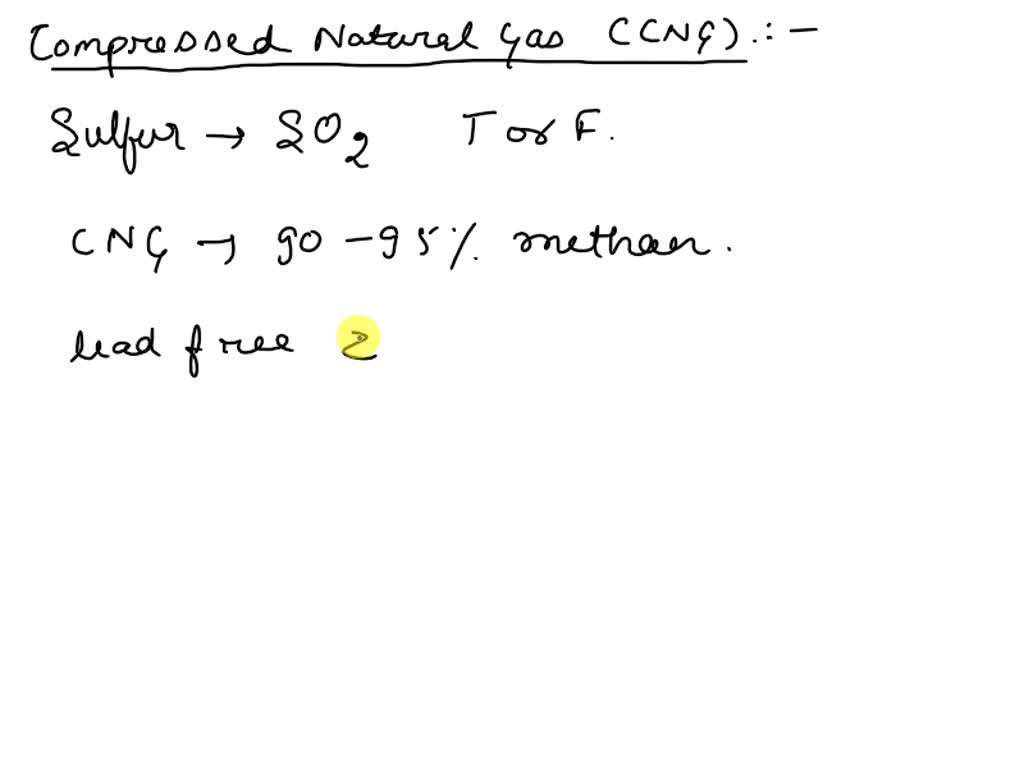 Compressed Natural Gas (CNG) :-
Sulfur → SO2 T or F.
CNG → 90 - 95% methan.
lead free